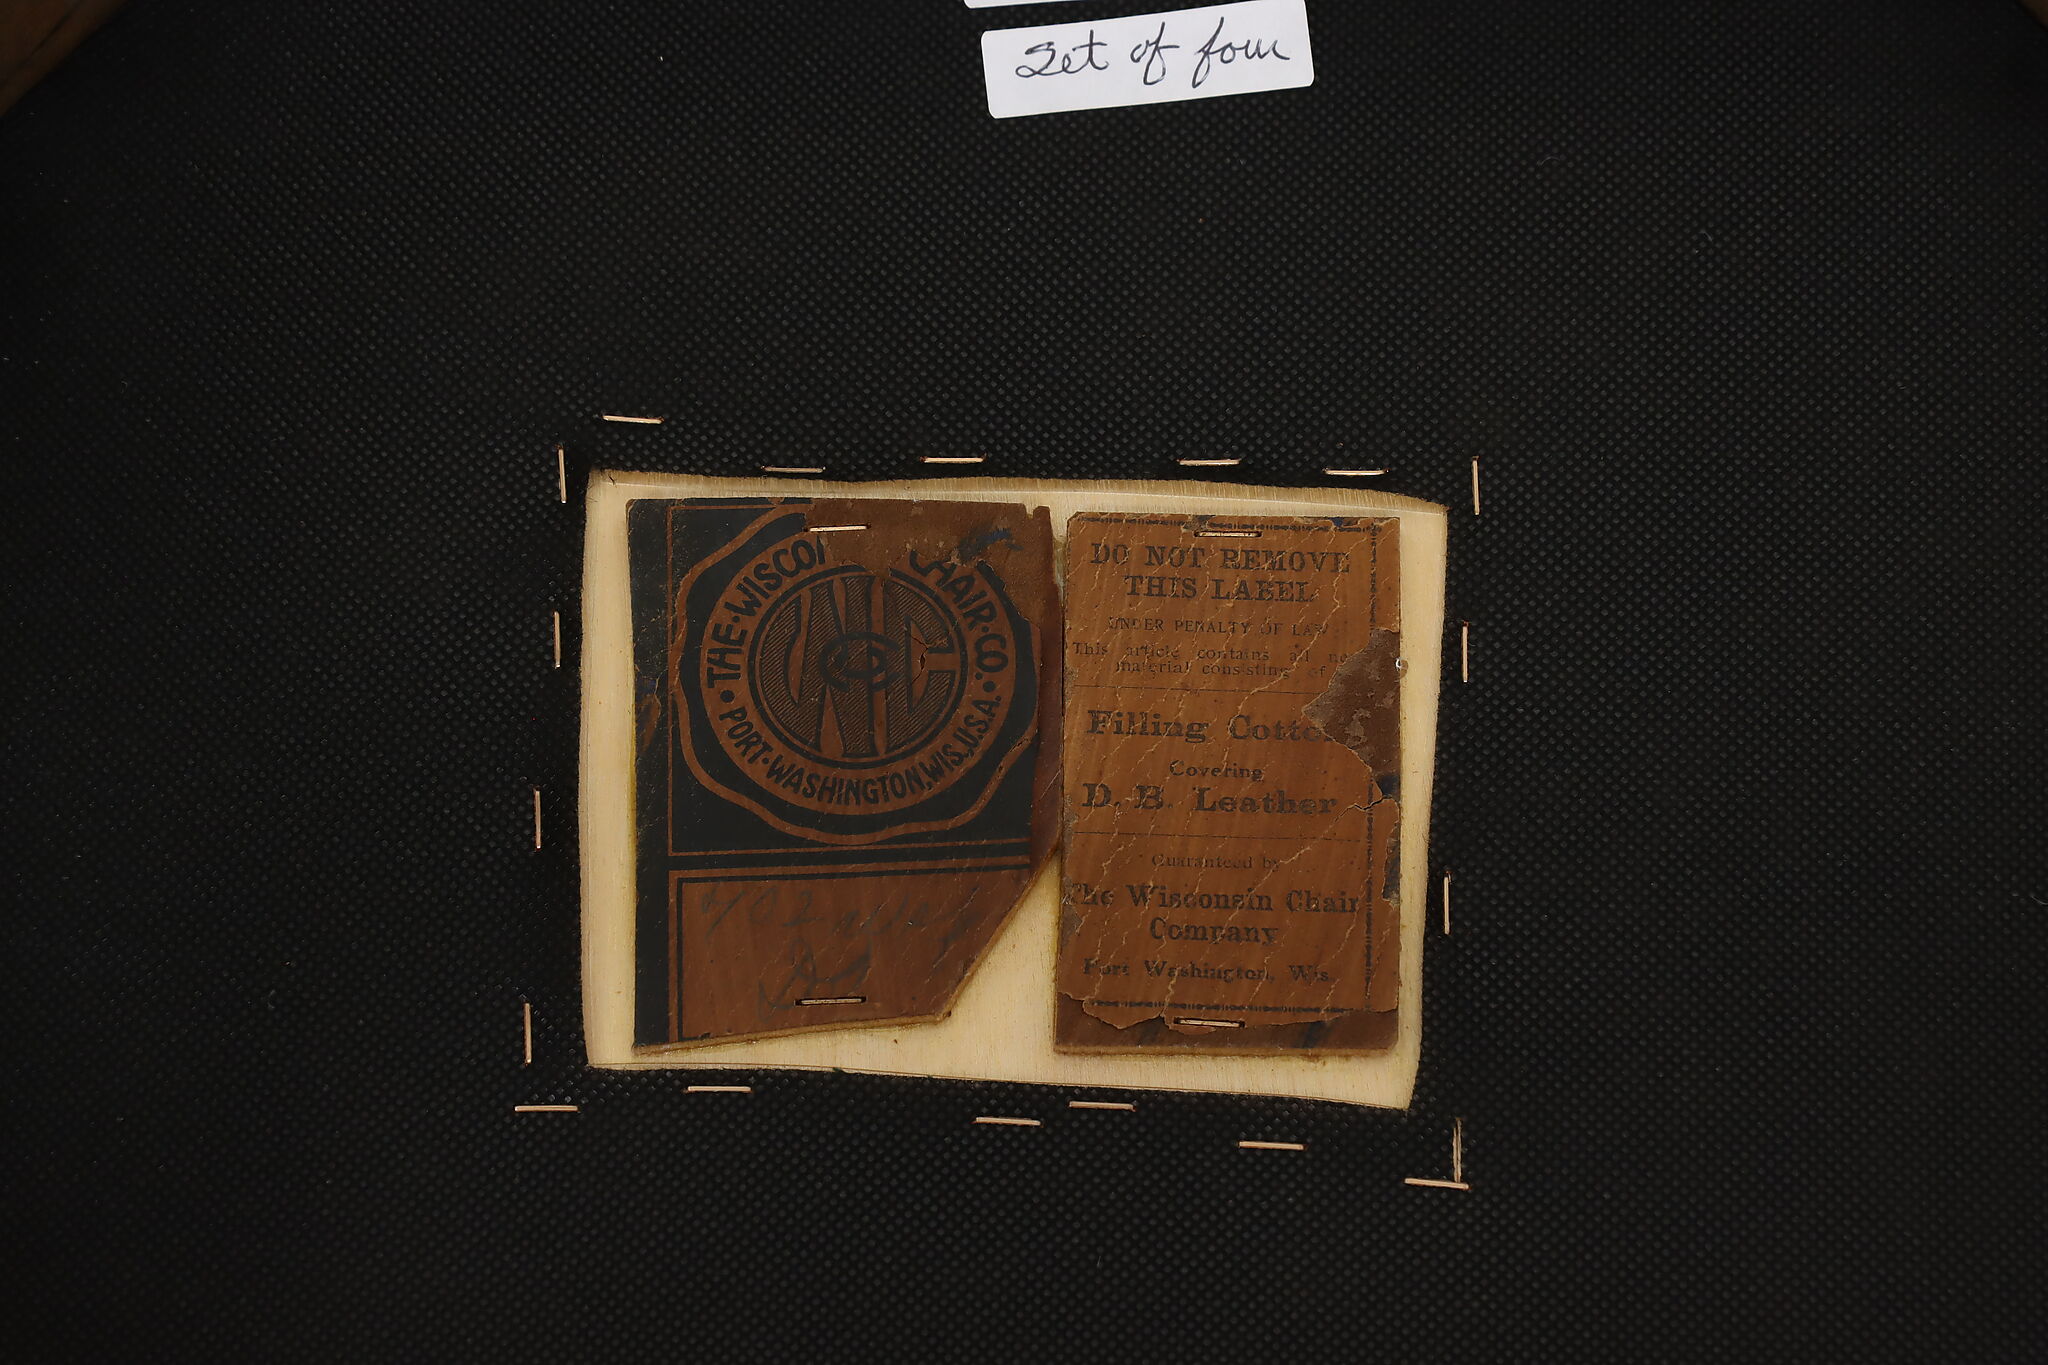 Set of four
THE · WISCON CHAIR · CO.
· PORT · WASHINGTON, WIS., U.S.A. ·
402
DO NOT REMOVE
THIS LABEL
UNDER PENALTY OF LAW
This article contains all ne
material consisting of
Filling Cotto
Covering
D. B. Leather
Guaranteed by
The Wisconsin Chair
Company
Port Washington, Wis.